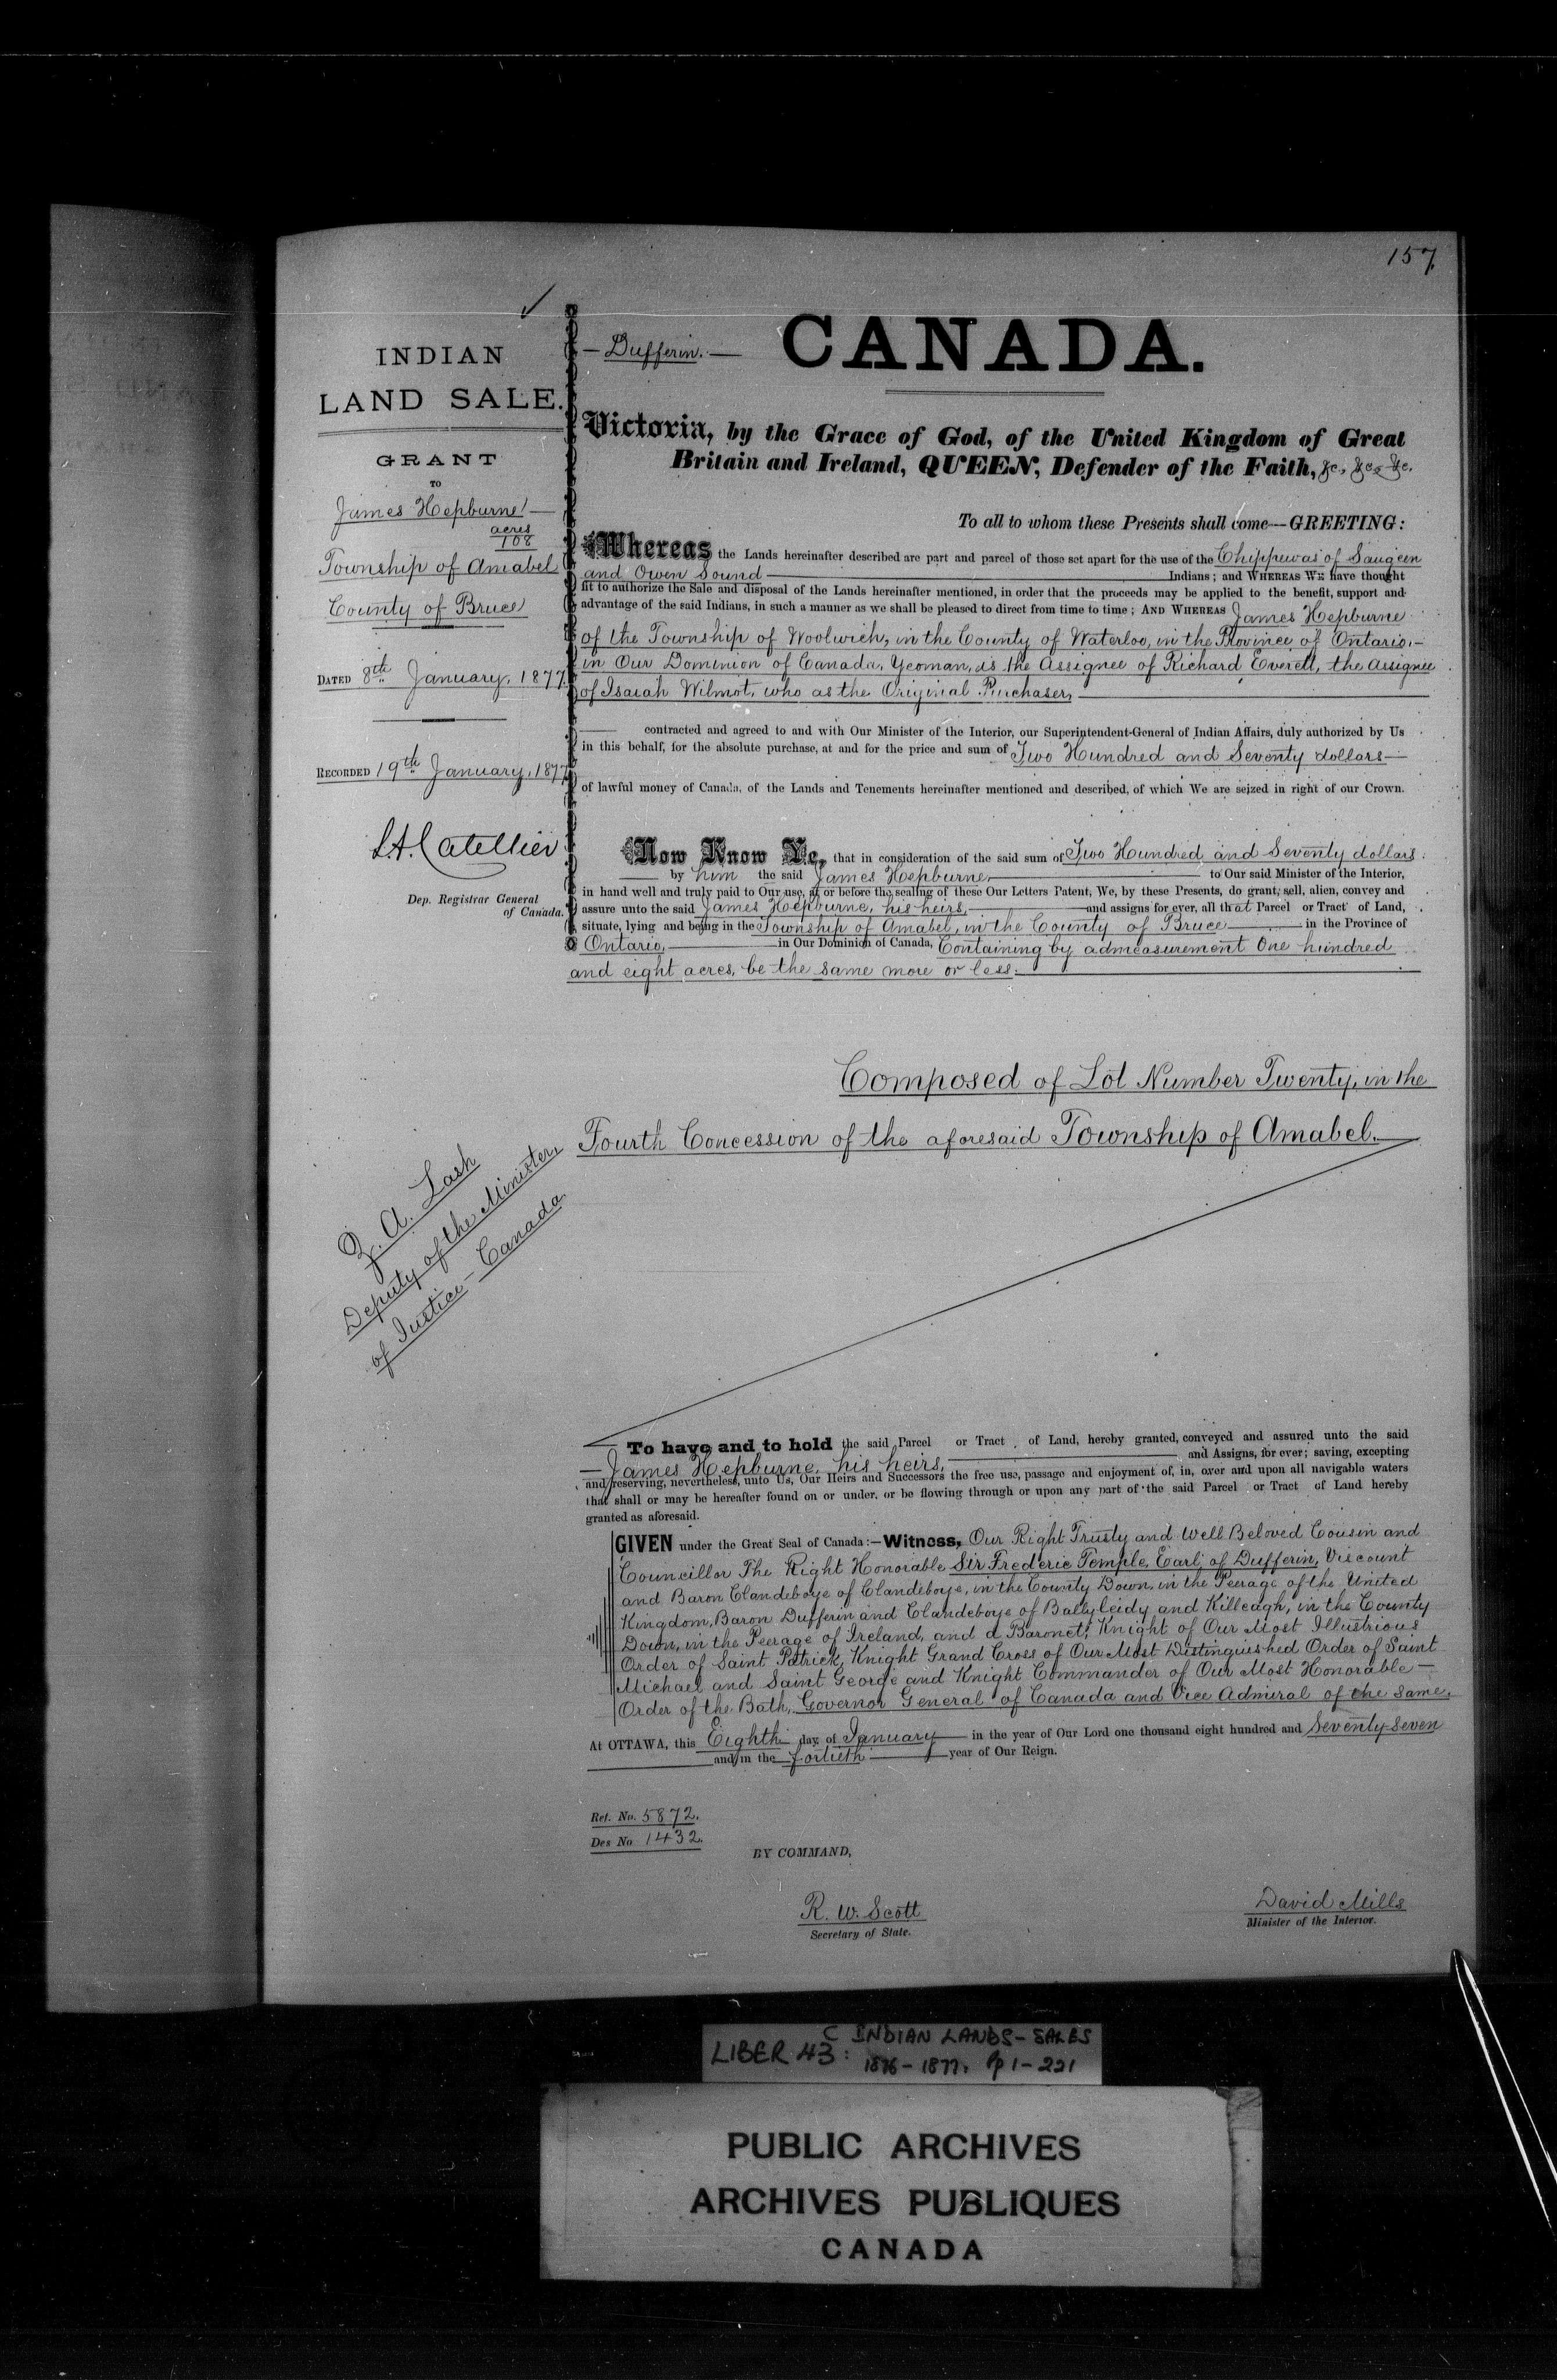 157
INDIAN
LAND SALE.
GRANT
TO
James Hepburne
acres
108
Township of Amabel
County of Bruce
DATED 8th January, 1877
RECORDED 19th January, 1877
L.A. Catellier
Dep. Registrar General
of Canada.
Z. A. Lash
Deputy of the Minister,
of Justice - Canada.
— Dufferin. —
CANADA.
Victoria, by the Grace of God, of the United Kingdom of Great
Britain and Ireland, QUEEN, Defender of the Faith, &c, &c, &c.
To all to whom these Presents shall come---GREETING:
Whereas the Lands hereinafter described are part and parcel of those set apart for the use of the Chippewas of Saugeen
and Owen Sound Indians; and WHEREAS WE have thought
fit to authorize the Sale and disposal of the Lands hereinafter mentioned, in order that the proceeds may be applied to the benefit, support and
advantage of the said Indians, in such a manner as we shall be pleased to direct from time to time; AND WHEREAS James Hepburne
of the Township of Woolwich, in the County of Waterloo, in the Province of Ontario,—
in Our Dominion of Canada, Yeoman, as the Assignee of Richard Everett, the assignee
of Isaiah Wilmot, who as the Original Purchaser,
contracted and agreed to and with Our Minister of the Interior, our Superintendent-General of Indian Affairs, duly authorized by Us
in this behalf, for the absolute purchase, at and for the price and sum of Two Hundred and Seventy dollars—
of lawful money of Canada, of the Lands and Tenements hereinafter mentioned and described, of which We are seized in right of our Crown.
Now Know Ye, that in consideration of the said sum of Two Hundred and Seventy dollars
by him the said James Hepburne, to Our said Minister of the Interior,
in hand well and truly paid to Our use, at or before the sealing of these Our Letters Patent, We, by these Presents, do grant, sell, alien, convey and
assure unto the said James Hepburne, his heirs, and assigns for ever, all that Parcel or Tract of Land,
situate, lying and being in the Township of Amabel, in the County of Bruce in the Province of
Ontario, in Our Dominion of Canada, Containing by admeasurement One hundred
and eight acres, be the same more or less.
Composed of Lot Number Twenty, in the
Fourth Concession of the aforesaid Township of Amabel.
To have and to hold the said Parcel or Tract of Land, hereby granted, conveyed and assured unto the said
James Hepburne, his heirs, and Assigns, for ever; saving, excepting
and reserving, nevertheless, unto Us, Our Heirs and Successors the free use, passage and enjoyment of, in, over and upon all navigable waters
that shall or may be hereafter found on or under, or be flowing through or upon any part of the said Parcel or Tract of Land hereby
granted as aforesaid.
GIVEN under the Great Seal of Canada:—Witness, Our Right Trusty and Well Beloved Cousin and
Councillor The Right Honorable Sir Frederic Temple, Earl of Dufferin, Viscount
and Baron Clandeboye of Clandeboye, in the County Down, in the Peerage of the United
Kingdom, Baron Dufferin and Clandeboye of Ballyleidy and Killeagh, in the County
Down, in the Peerage of Ireland, and a Baronet, Knight of Our Most Illustrious
Order of Saint Patrick, Knight Grand Cross of Our Most Distinguished Order of Saint
Michael and Saint George and Knight Commander of Our Most Honorable —
Order of the Bath, Governor General of Canada and Vice Admiral of the same.
At OTTAWA, this Eighth day of January in the year of Our Lord one thousand eight hundred and Seventy-Seven
and in the fortieth year of Our Reign.
Ref. No. 5872.
Des No 1432.
BY COMMAND,
R. W. Scott
Secretary of State.
David Mills
Minister of the Interior.
LIBER 43: C INDIAN LANDS - SALES
1876 - 1877. Pp 1 - 221
PUBLIC ARCHIVES
ARCHIVES PUBLIQUES
CANADA